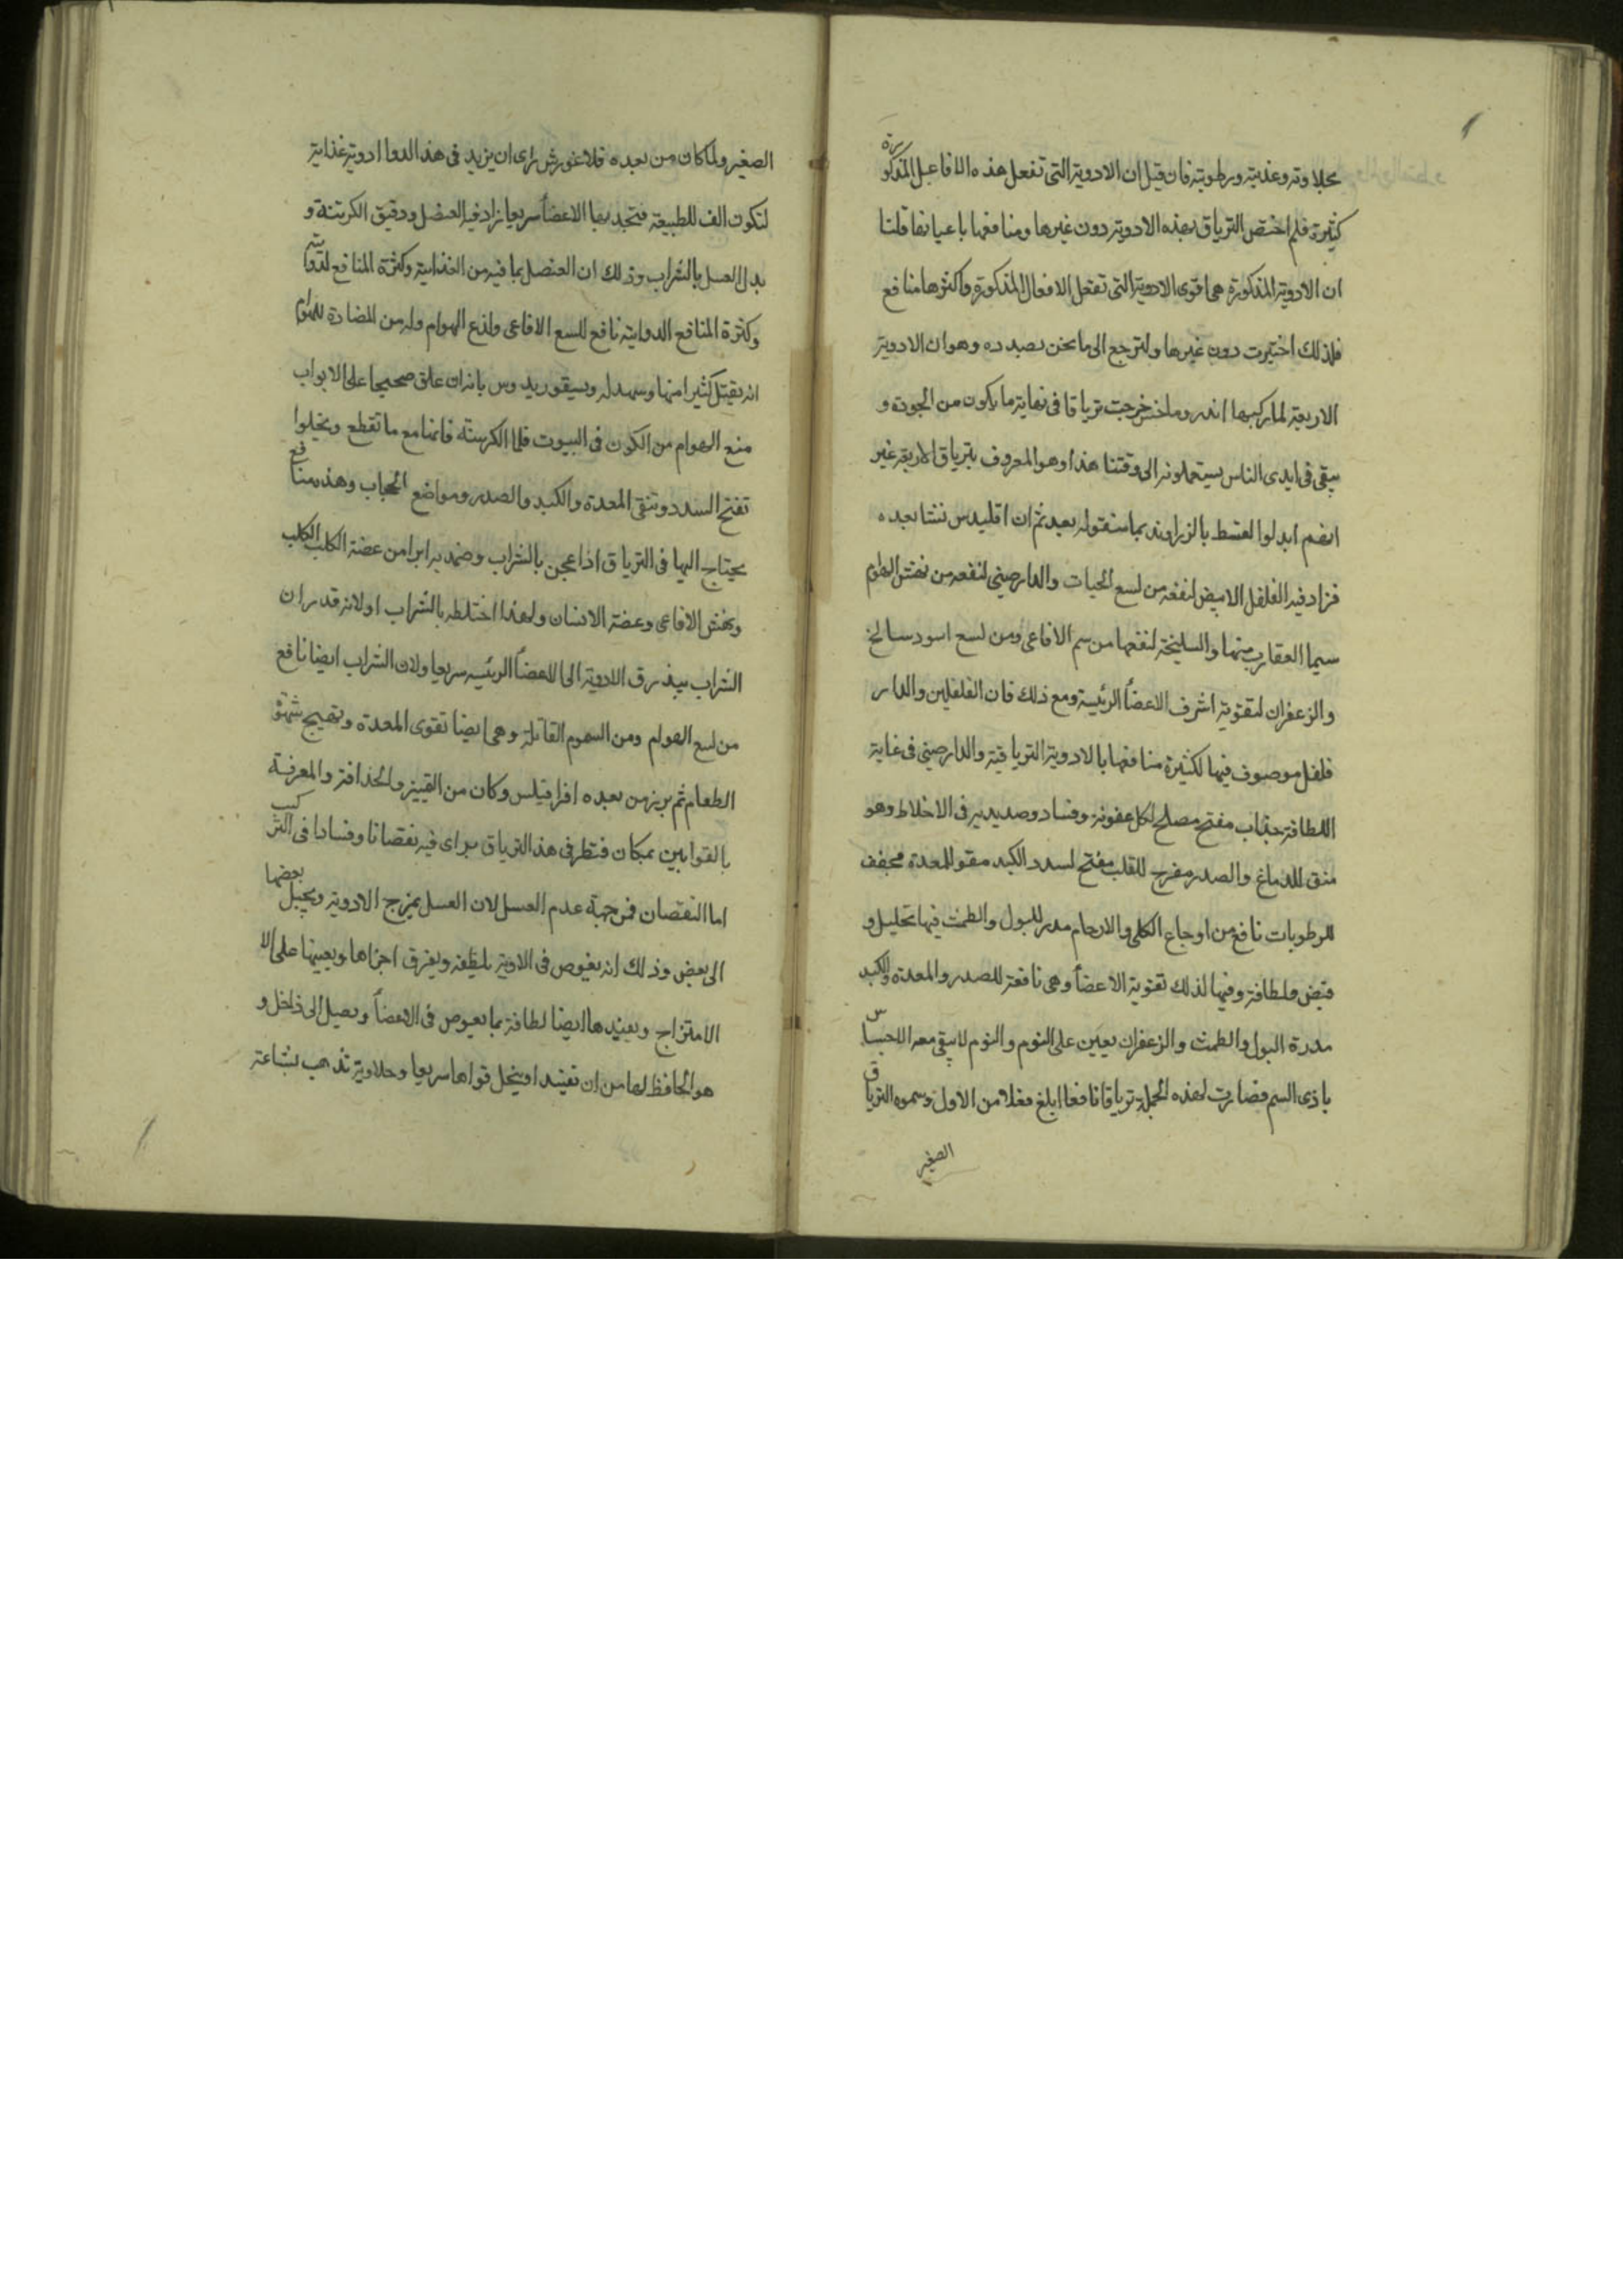 بحلاوته وعذبته ورطوبته فان قيل ان الادوية التى تفعل هذه الافاعيل المذكورة
كثيرة فلم اختص الترياق بهذه الادوية دون غيرها ومنافعها باعيانها قلنا
ان الادوية المذكورة هى اقوى الادوية التى تفعل الافعال المذكورة واكثرها منافع
فلذلك اختيرت دون غيرها ولنرجع الى ما نحن بصدده وهو ان الادوية
الاربعة لما ركبها اندروماخس خرجت ترياقا فى نهاية ما يكون من الجودة و
يبقى فى ايدى الناس يستعملونه الى وقتنا هذا وهو المعروف بترياق الاربعة غير
انهم ابدلوا القسط بالزراوند بما سنقوله بعد ثم ان اقليدس نشا بعده
فزاد فيه الفلفل الابيض لنفعه من لسع الحيات والدارصينى لنفعه من نهش الهوام
سيما العقارب منها والسليخة لنفعها من سم الافاعى ومن لسع اسود سالخ
والزعفران لتقوية اشرف الاعضأ الرئيسة ومع ذلك فان الفلفلين والدار
فلفل موصوف فيها لكثيرة منافعها بالادوية الترياقية والدارصينى فى غاية
اللطافة جذاب مفتح مصلح لكل عفونة وفساد وصديدية فى الاخلاط وهو
منق للدماغ والصدر مفرح للقلب مفتح لسدد الكبد مقو للمعدة مجفف
للرطوبات نافع من اوجاع الكلى والارحام مدر للبول والطمث فيها تحليل و
قبض ولطافة وفيها لذلك تقوية الاعضأ وهى نافعة للصدر والمعدة والكبد
مدرة البول والطمث والزعفران يعين على النوم والنوم لا يبقى معه الاحساس
باذى السم فصارت لهذه الجملة ترياقا نافعا ابلغ فعلا من الاول وسموه الترياق
الصغير
الصغير ولما كان من بعده فلاغورش راى ان يزيد فى هذا الدوا ادوية غذاية
لتكون الف للطبيعة فتجد بها الاعضأ سريعا زاد فيه العنصل ودقيق الكرسنة و
بدل العسل بالشراب وذلك ان العنصل بما فيه من الغذاية وكثرة المنافع لدوايته
وكثرة المنافع الدواية نافع للسع الافاعى ولذع الهوام وله من المضادة للهوام
انه يقتل كثيرا منها وسهدله ديسقوريدوس بانه ان علق صحيحا على الابواب
منع الهوام من الكون فى البيوت فاما الكرسنة فانها مع ما تقطع وتحلوا
تفتح السدد وتنقى المعدة والكبد والصدر ومواضع الحجاب وهذه منافع
يحتاج اليها فى الترياق اذا عجن بالشراب وضمد به ابرا من عضة الكلب الكلب
ونهش الافاعى وعضة الانسان ولهذا اختلطه بالشراب اولانه قدر ان
الشراب يبذرق الادوية الى الاعضأ الرئيسه سريعا ولان الشراب ايضا نافع
من لسع الهوام ومن السموم القاتلة وهى ايضا تقوى المعدة وتهيج شهوة
الطعام ثم برز من بعده افراقيلس وكان من التمييز والحذاقة والمعرفة
بالقوانين بمكان فنظر فى هذا الترياق فراى فيه نقصانا وفسادا فى التركيب
اما النقصان فمن جهة عدم العسل لان العسل يمزج الادوية ويجبل بعضها
الى بعض وذلك انه يغوص فى الادوية بلطيفه ويفرق اجزاها ويعينها على الا
الامتزاج ويفيدها ايضا لطافة بما يغوص فى الاعضأ ويصل الى داخل و
هو الحافظ لها من ان تفسد او ينحل قواها سريعا وحلاوته تذهب بشاعة